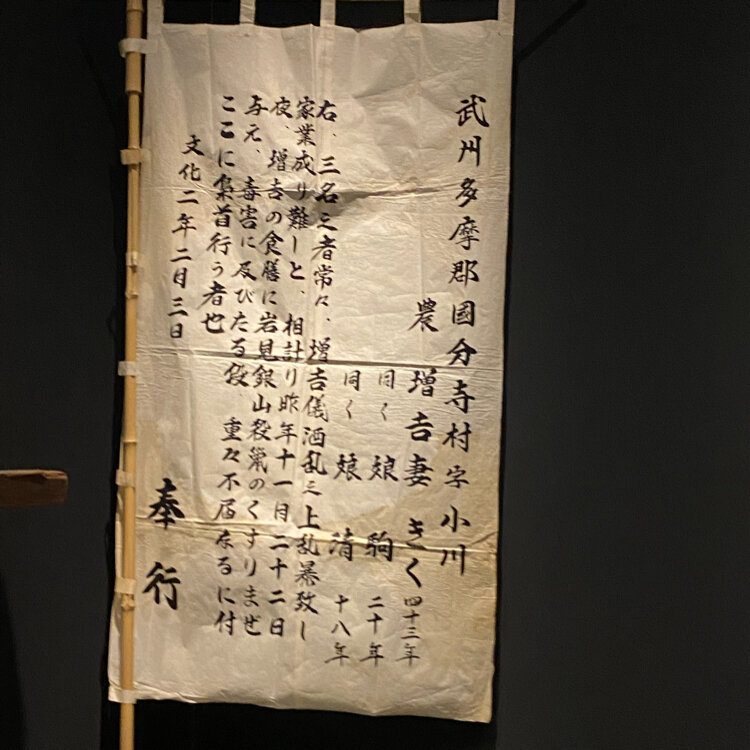 武州多摩郡國分寺村字小川
農 増吉妻 きく 四十三年
同く 娘 駒 二十年
同く 娘 清 十八年
右、三名之者常々、増吉儀酒乱之上乱暴致し
家業成り難しと、相計り昨年十一月二十二日
夜、増吉の食膳に岩見銀山殺鼠のくすりまぜ
与え、毒害に及びたる段、重々不届なるに付
ここに梟首行う者也
文化二年二月三日
奉行